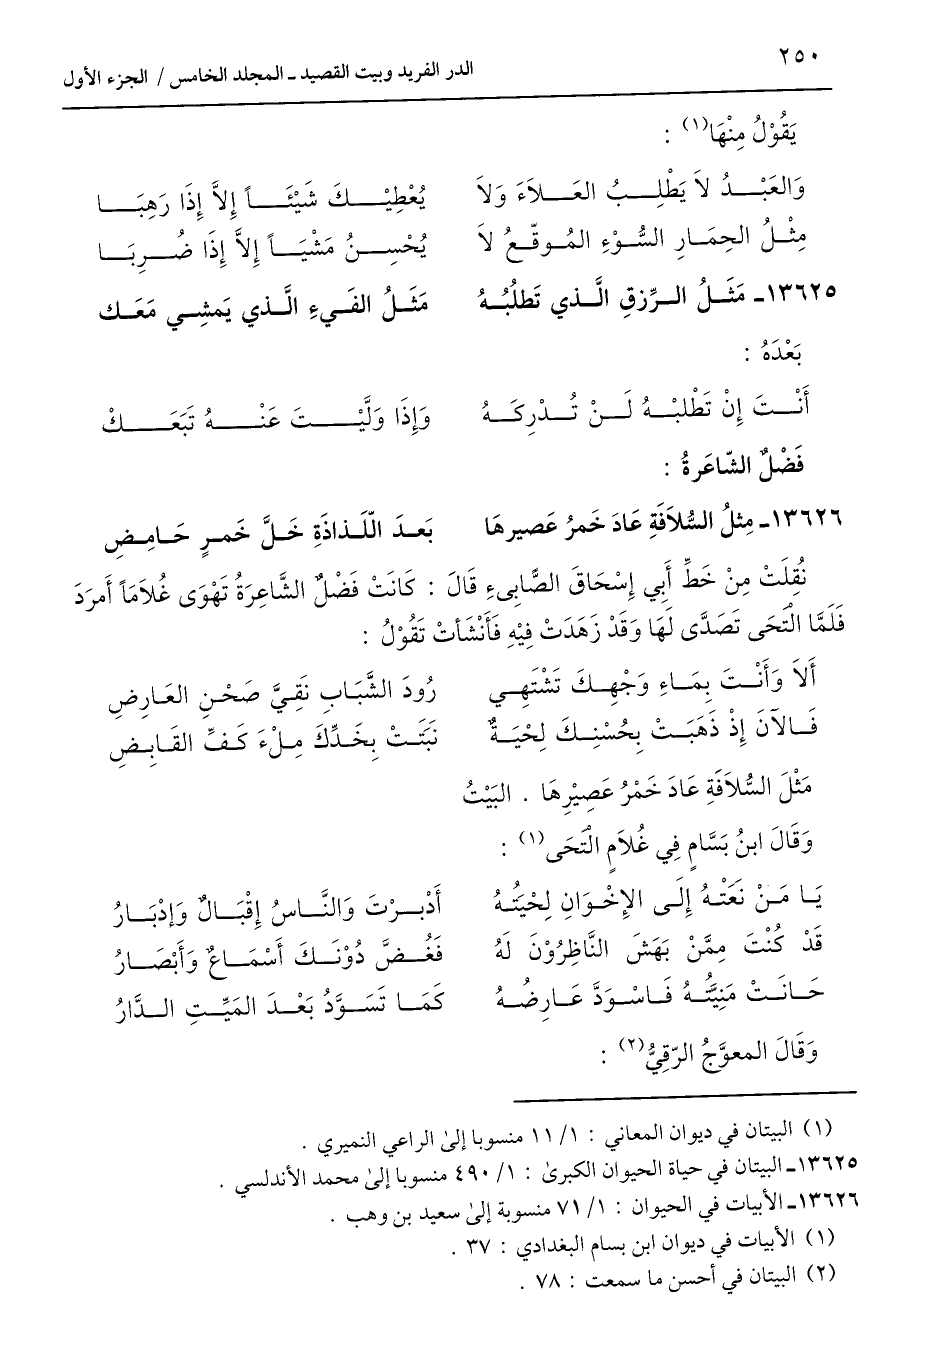 ٢٥٠
الدر الفريد وبيت القصيد ـ المجلد الخامس / الجزء الأول
يَقُوْلُ مِنْهَا(١) :
وَالعَبْدُ لاَ يَطْلِبُ العَلاَءَ وَلاَ يُعْطِيْكَ شَيْئَاً إِلاَّ إِذَا رَهِبَا
مِثْلُ الحِمَارِ السُّوْءِ المُوقّعُ لاَ يُحْسِنُ مَشْيَاً إِلاَّ إِذَا ضُرِبَا
١٣٦٢٥ـ مَثَلُ الرِّزقِ الَّذي تَطلُبُهُ مَثَلُ الفَيءِ الَّذي يَمشِي مَعَك
بَعْدَهُ :
أَنْتَ إِنْ تَطْلبْهُ لَنْ تُدْرِكَهُ وَإِذَا وَلَّيْتَ عَنْهُ تَبَعَكْ
فَضْلٌ الشّاعَرةُ :
١٣٦٢٦ـ مِثلُ السُّلاَفَةِ عَادَ خَمرُ عَصيرِهَا بَعدَ الّلَذاذَةِ خَلَّ خَمرٍ حَامِضِ
نُقِلَتْ مِنْ خَطِّ أَبِي إِسْحَاقَ الصَّابِىءِ قَالَ : كَانَتْ فَضْلٌ الشَّاعِرَةُ تَهْوَى غُلاَمَاً أَمرَدَ
فَلَمَّا الْتَحَى تَصَدَّى لَهَا وَقَدْ زَهَدَتْ فِيْهِ فَأَنْشَأتْ تَقُوْلُ :
أَلاَ وَأَنْتَ بِمَاءِ وَجْهِكَ تَشْتَهِي رُودَ الشَّبَابِ نَقِيَّ صَحْنِ العَارِضِ
فَالآنَ إِذْ ذَهَبَتْ بِحُسْنِكَ لِحْيَةٌ نَبَتَتْ بِخَدِّكَ مِلْءَ كَفِّ القَابِضِ
مَثْلَ السُّلاَفَةِ عَادَ خَمْرُ عَصِيْرِهَا . البَيْتُ
وَقَالَ ابنُ بَسَّامٍ فِي غُلاَمٍ الْتَحَى(١) :
يَا مَنْ نَعَتْهُ إِلَى الإِخْوَانِ لِحْيَتُهُ أَدْبَرْتَ وَالنَّاسُ إِقْبَالٌ وَإِدْبَارُ
قَدْ كُنْتَ مِمَّنْ بَهَشَ النَّاظِرُوْنَ لَهُ فَغُضَّ دُوْنَكَ أَسْمَاعٌ وَأَبْصَارُ
حَانَتْ مَنِيَّتُهُ فَاسْوَدَّ عَارِضُهُ كَمَا تَسَوَّدُ بَعْدَ المَيِّتِ الدَّارُ
وَقَالَ المعوَّجُ الرّقِيُّ(٢) :
(١) البيتان في ديوان المعاني : ١/ ١١ منسوبا إلىٰ الراعي النميري .
١٣٦٢٥ـ البيتان في حياة الحيوان الكبرىٰ : ١/ ٤٩٠ منسوبا إلىٰ محمد الأندلسي .
١٣٦٢٦ـ الأبيات في الحيوان : ١/ ٧١ منسوبة إلىٰ سعيد بن وهب .
(١) الأبيات في ديوان ابن بسام البغدادي : ٣٧ .
(٢) البيتان في أحسن ما سمعت : ٧٨ .